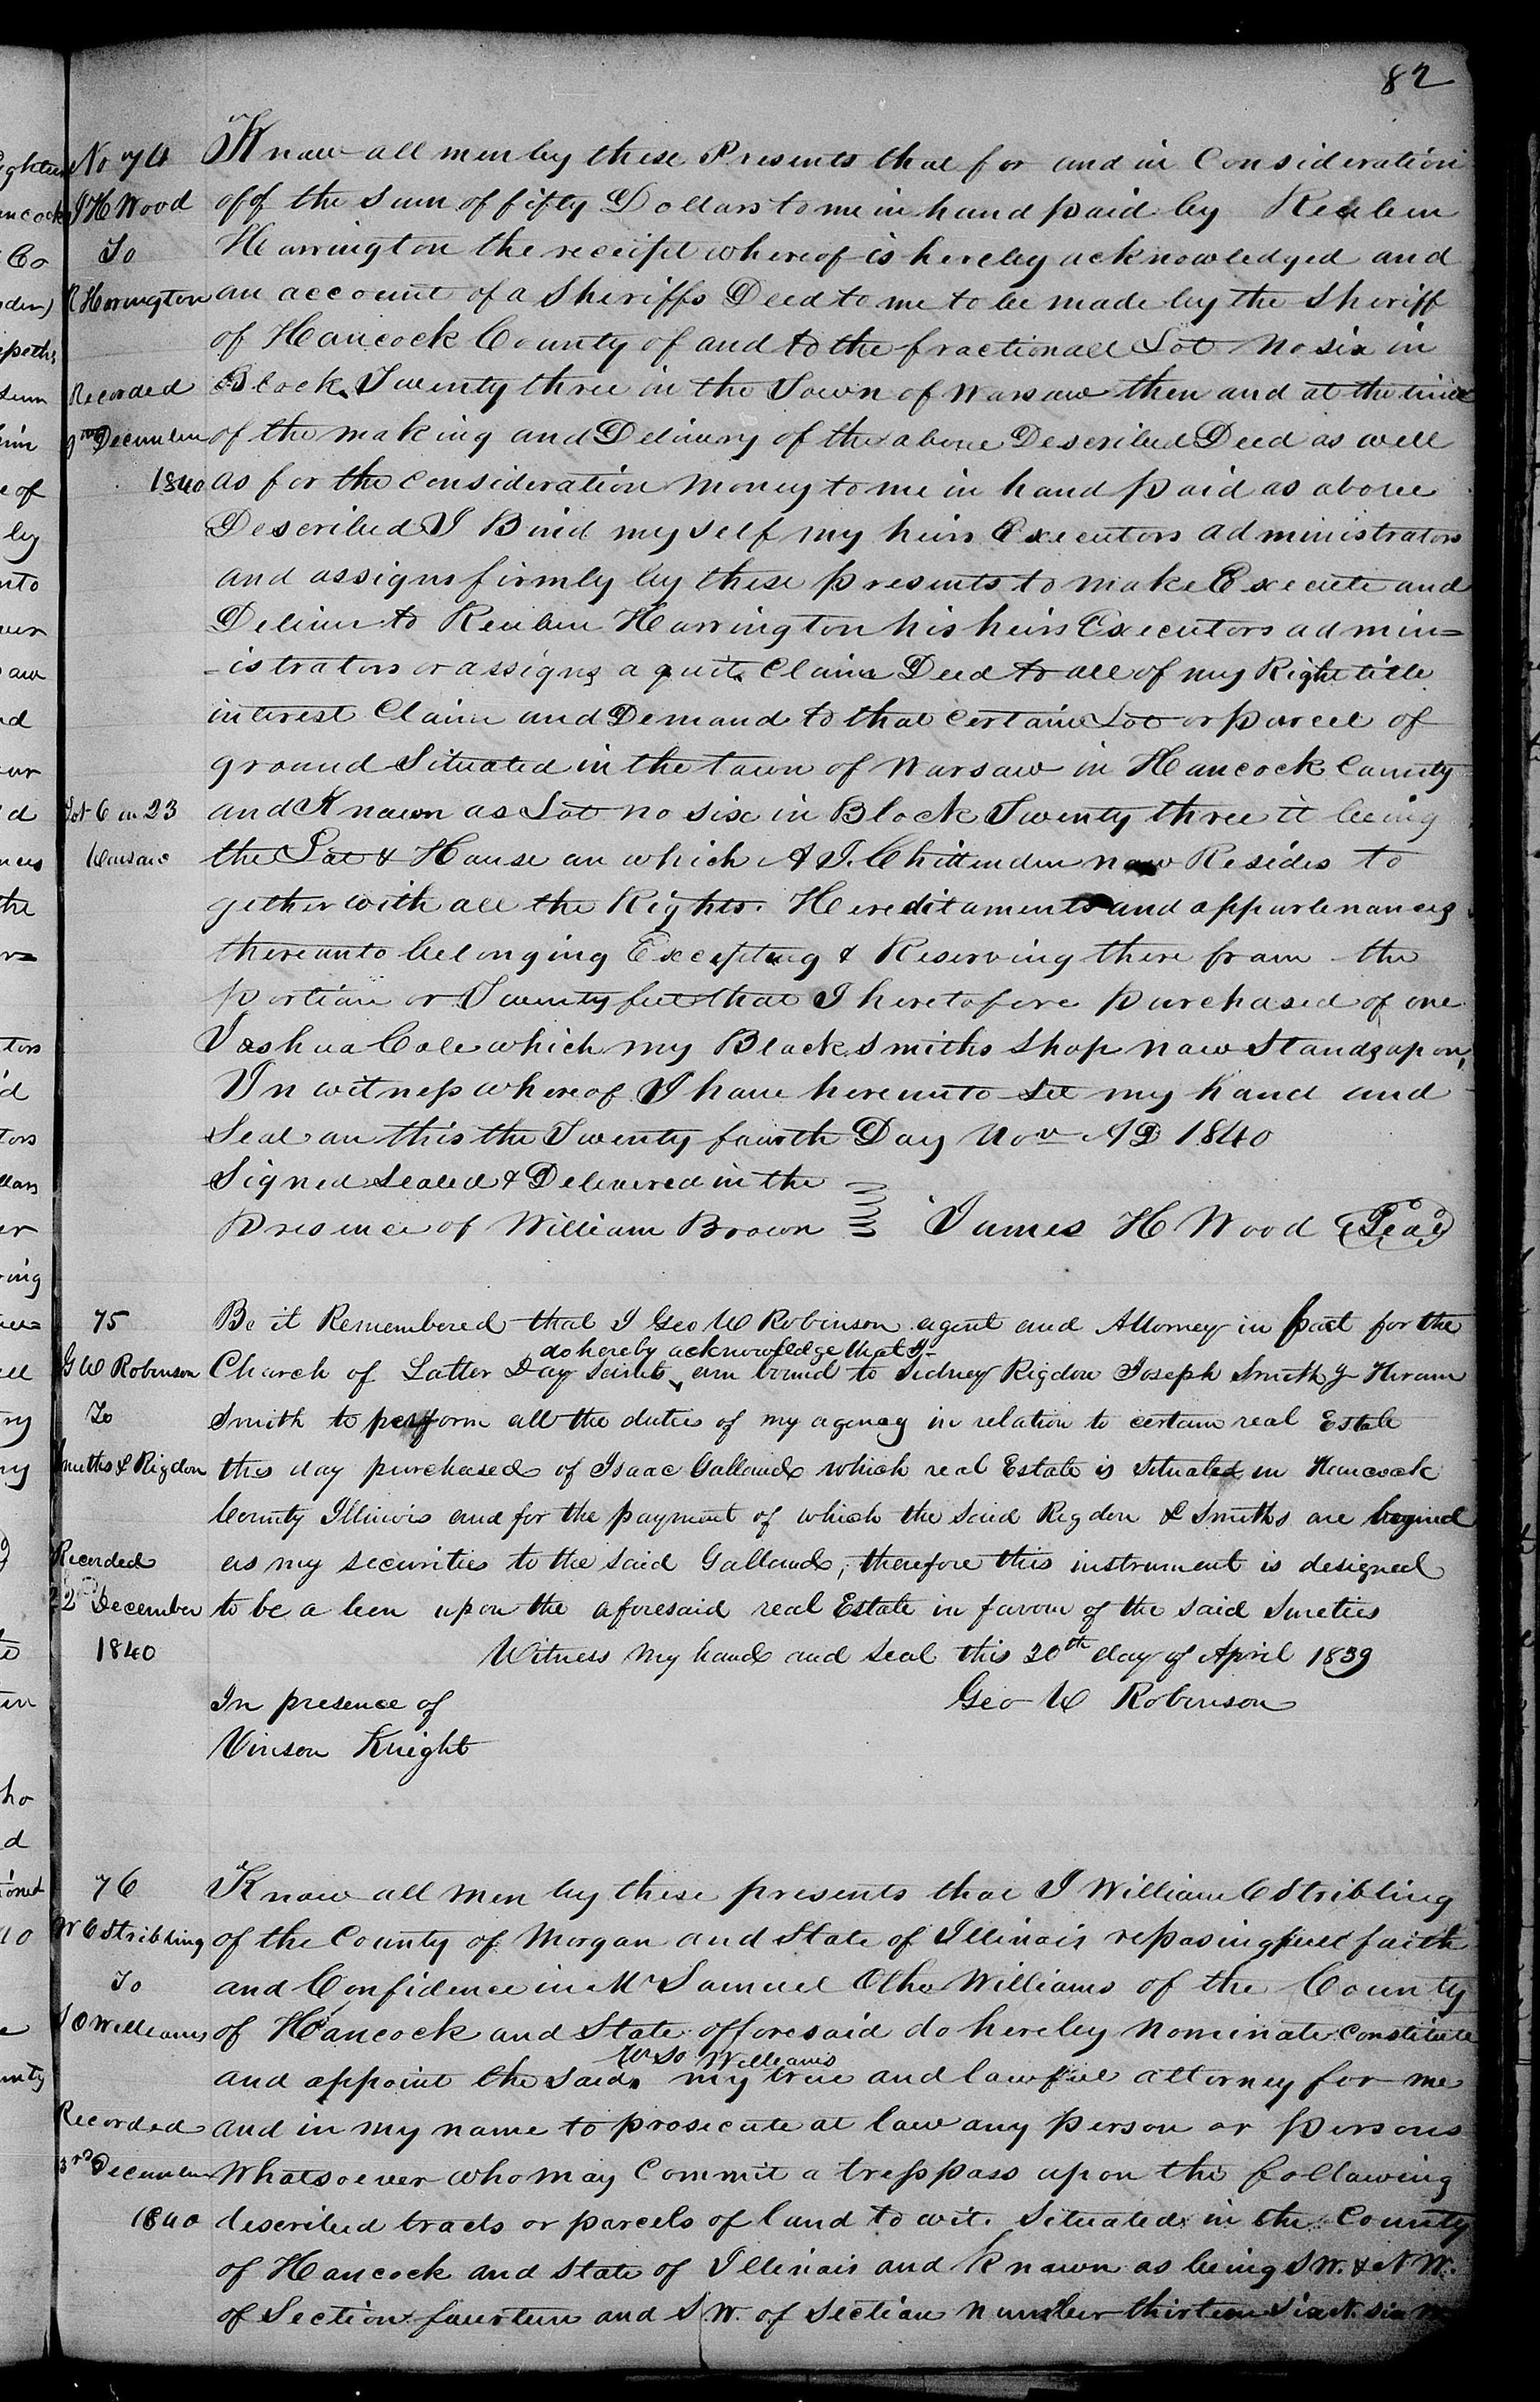 82
No 74
J H Wood
To
R Harrington
Recorded
9th December
1840
Lot 6 in 23
Warsaw
Know all men by these Presents that for and in Consideration
off the Sum of fifty Dollars to me in hand paid by Reuben
Harrington the receipt whereof is hereby acknowledged and
an account of a Sheriffs Deed to me to be made by the Sheriff
of Hancock County of and to the fractionall Lot No six in
Block Twenty three in the Town of Warsaw then and at the time
of the making and Delivery of the above Described Deed as well
as for the consideration Money to me in hand paid as above
Described I Bind my self my heirs Executors administrators
and assigns firmly by these presents to make Execute and
Deliver to Reuben Harrington his heirs Executors admin=
-istrators or assigns a quit Claim Deed to all of my Right title
interest Claim and Demand to that certain Lot or parcel of
ground Situated in the town of Warsaw in Hancock County
and Known as Lot no six in Block Twenty three it being
the Lot & House on which A J. Chittenden now Resides to
gether with all the Rights. Hereditaments and appurtenances
thereunto belonging Excepting & Reserving there from the
portion or Twenty feet that I heretofore purchased of one
Joshua Cole which my Black Smiths Shop now Stands upon,
In witness whereof I have hereunto set my hand and
Seal on this the Twenty fourth Day Nov AD 1840
Signed Sealed & Delivered in the
presence of William Brown James H Wood Seal
75
G W Robinson
To
Smiths & Rigdon
Recorded
22nd December
1840
Be it Remembered that I Geo W Robinson agent and Attorney in fact for the
do hereby acknowledge that I
Church of Latter Day Saints am bound to Sidney Rigdon Joseph Smith Jr Hiram
Smith to perform all the duties of my agency in relation to certain real Estate
this day purchased of Isaac Galland which real Estate is situated in Hancock
County Illinois and for the payment of which the said Rigdon & Smiths are
as my securities to the said Galland, therefore this instrument is designed
to be a leen upon the aforesaid real Estate in favour of the said Sureties
Witness my hand and seal this 30th day of April 1839
In presence of Geo W Robinson
Vinson Knight
76
W C Stribling
To
S O Williams
Recorded
3rd December
1840
Know all men by these presents that I William C Stribling
of the County of Morgan and State of Illinois reposing full faith
and Confidence in Mr Samuel Otho Williams of the County
of Hancock and State offoresaid do hereby nominate constitute
Williams
and appoint the said my true and lawful attorney for me
and in my name to prosecute at law any person or persons
Whatsoever who may Commit a tresspass upon the following
described tracts or parcels of land to wit. Situated in the County
of Hancock and State of Illinois and Known as being S W. & N W.
of Section fourteen and S W. of Section Number thirteen six N. six